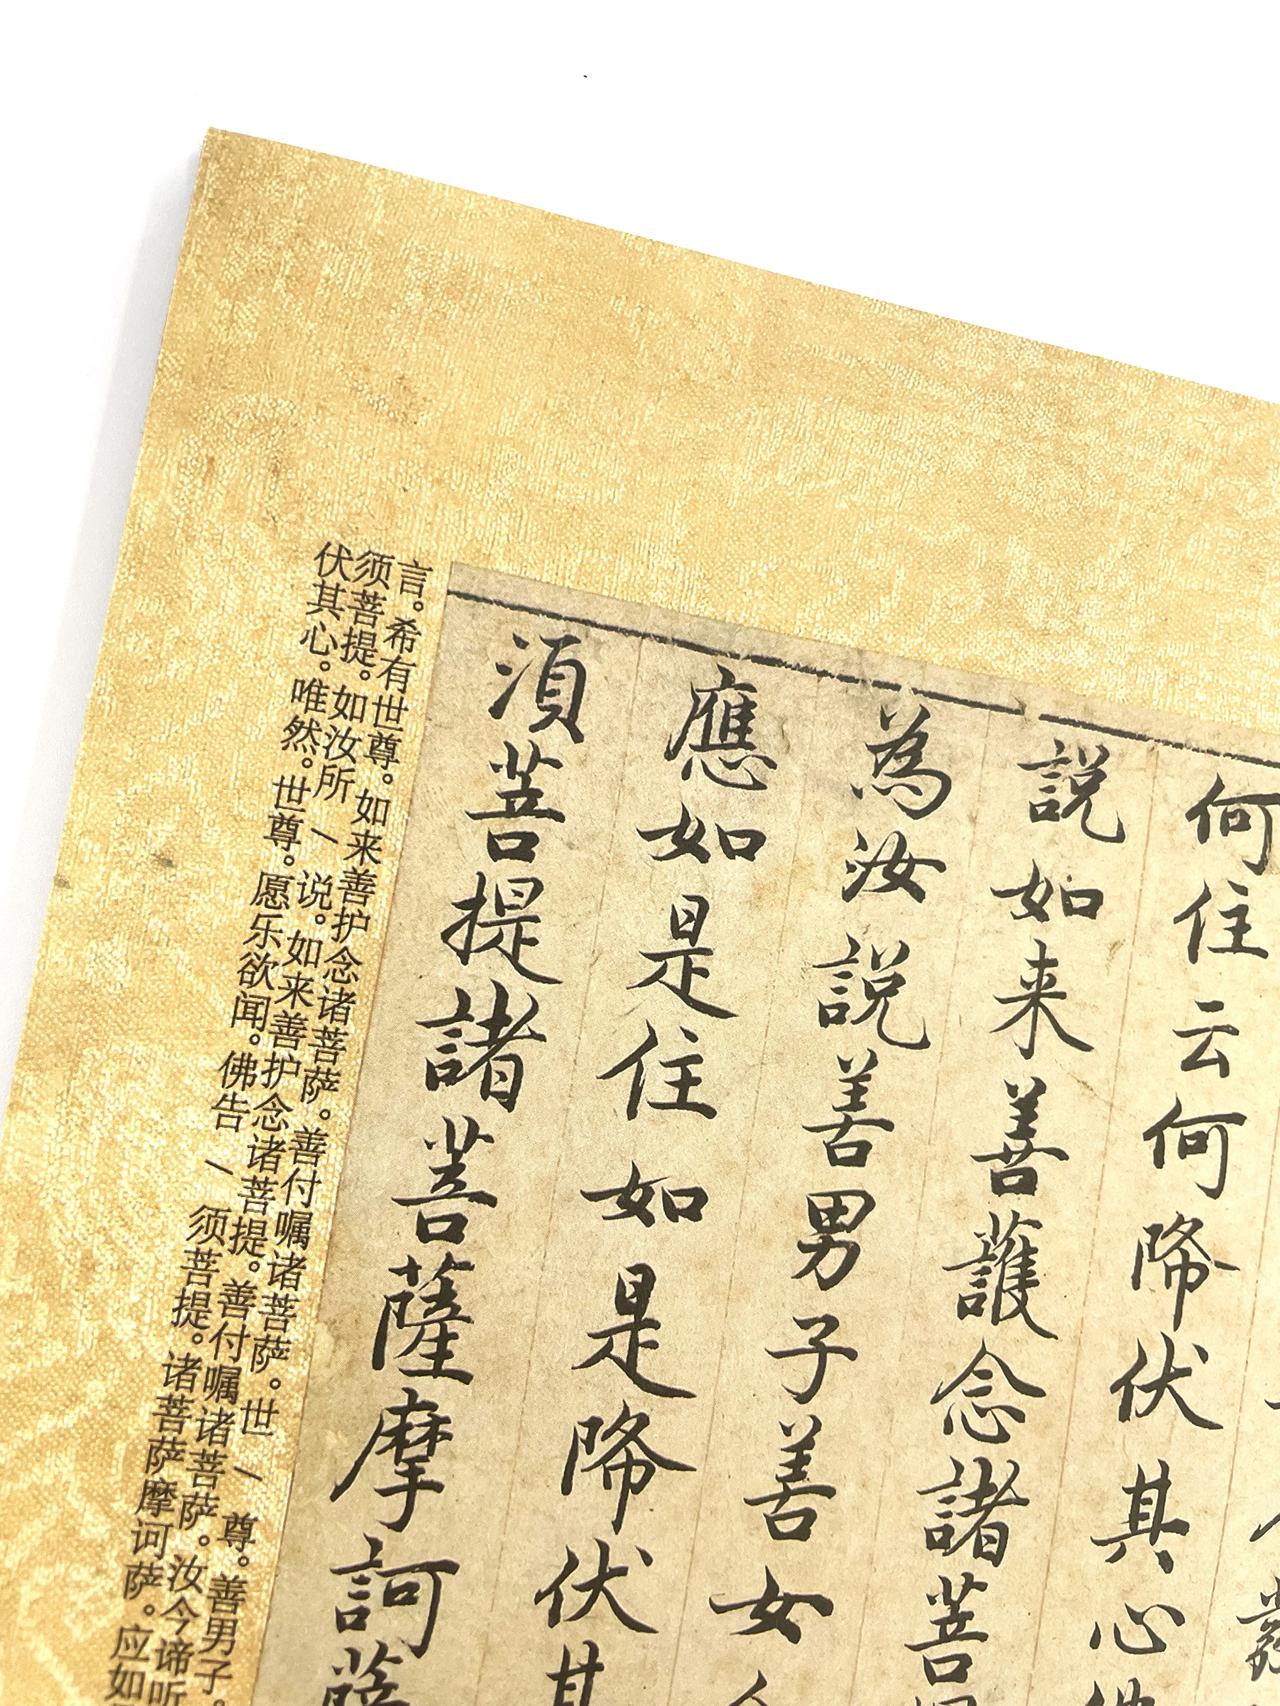 何住云何降伏其心
説如来善護念諸菩
為汝説善男子善女人
應如是住如是降伏其
須菩提諸菩薩摩訶薩
言。希有世尊。如来善护念诸菩萨。善付嘱诸菩萨。世｜尊。善男子。
须菩提。如汝所｜说。如来善护念诸菩提。善付嘱诸菩萨。汝今谛听
伏其心。唯然。世尊。愿乐欲闻。佛告｜须菩提。诸菩萨摩诃萨。应如